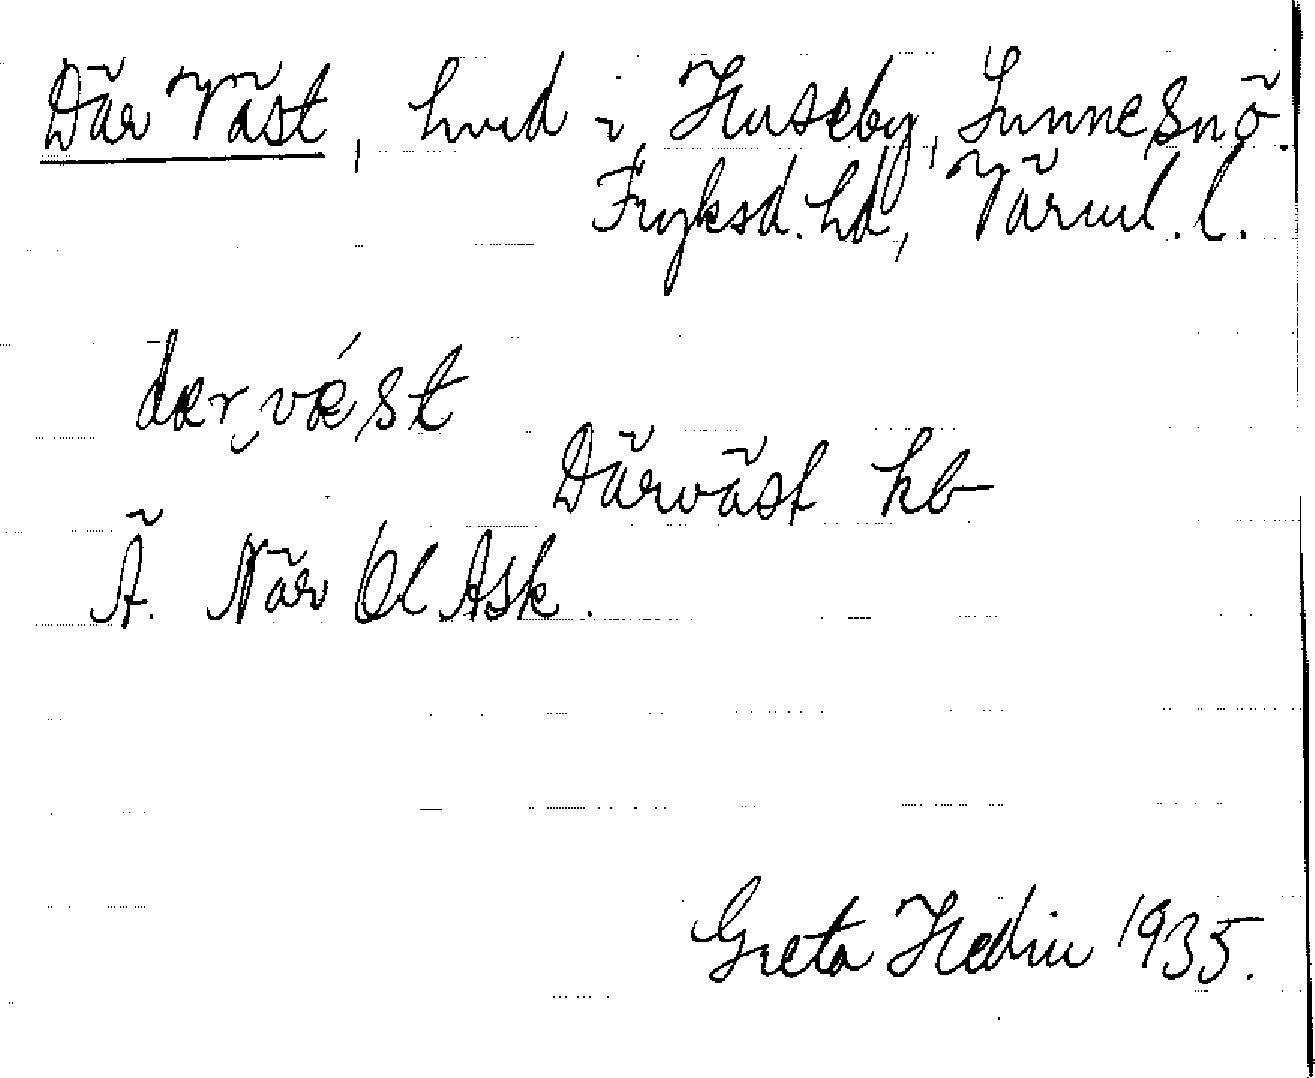 Där Väst, hmd i Huseby, Sunne sn ö.
Fryksd. hd, Värml. l.
dær̮vǽst
Därväst kb
Ä. När Ol Ask.
Greta Hedin 1935.